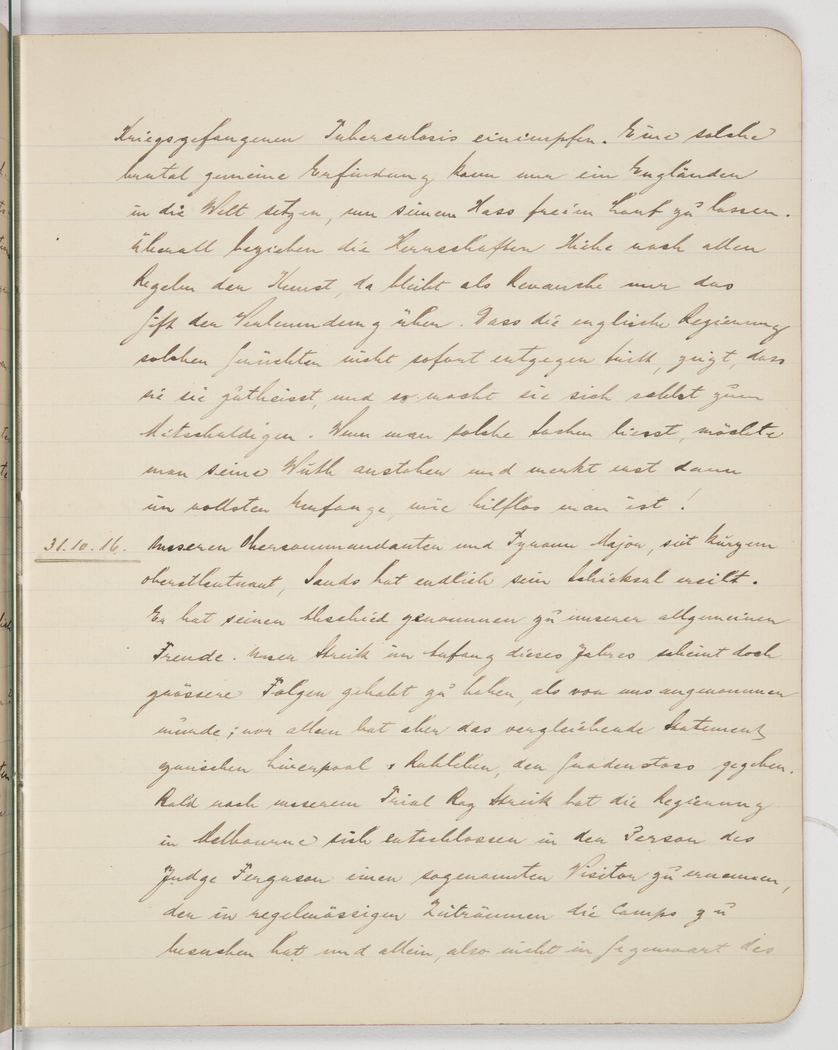 Kriegsgefangenen Tuberculosis einimpfen. Eine solche
brutal gemeine Erfindung kann nur ein Engländer
in die Welt setzen, um seinem Hass freien Lauf zu lassen.
Überall beziehen die Herrschaften Hiebe nach allen
Regeln der Kunst, da bleibt als Revanche nur das
Gift der Verleumdung über. Dass die englische Regierung
solchen Gerüchten nicht sofort entgegen tritt, zeigt, dass
sie sie gutheisst, und so macht sie sich selbst zum
Mitschuldigen. Wenn man solche Sachen liesst, möchte
man seine Wuth austoben und merkt erst dann
im vollsten Umfange, wie hilflos man ist!
31.10.16. Unseren Obercommandanten und Tyrann Major, seit kurzem
Oberstleutnant, Sands hat endlich sein Schicksal ereilt.
Er hat seinen Abschied genommen zu unserer allgemeinen
Freude. Unser Streik im Anfang dieses Jahres scheint doch
grössere Folgen gehabt zu haben, als von uns angenommen
wurde; vor allem hat aber das vergleichende Statement
zwischen Liverpool & Ruhleben, den Gnadenstoss gegeben.
Bald nach unserem Trial Bay Streik hat die Regierung
in Melbourne sich entschlossen in der Person des
Judge Ferguson einen sogenannten Visitor zu ernennen,
der in regelmässigen Zeiträumen die Camps zu
besuchen hat und allein, also nicht in Gegenwart des